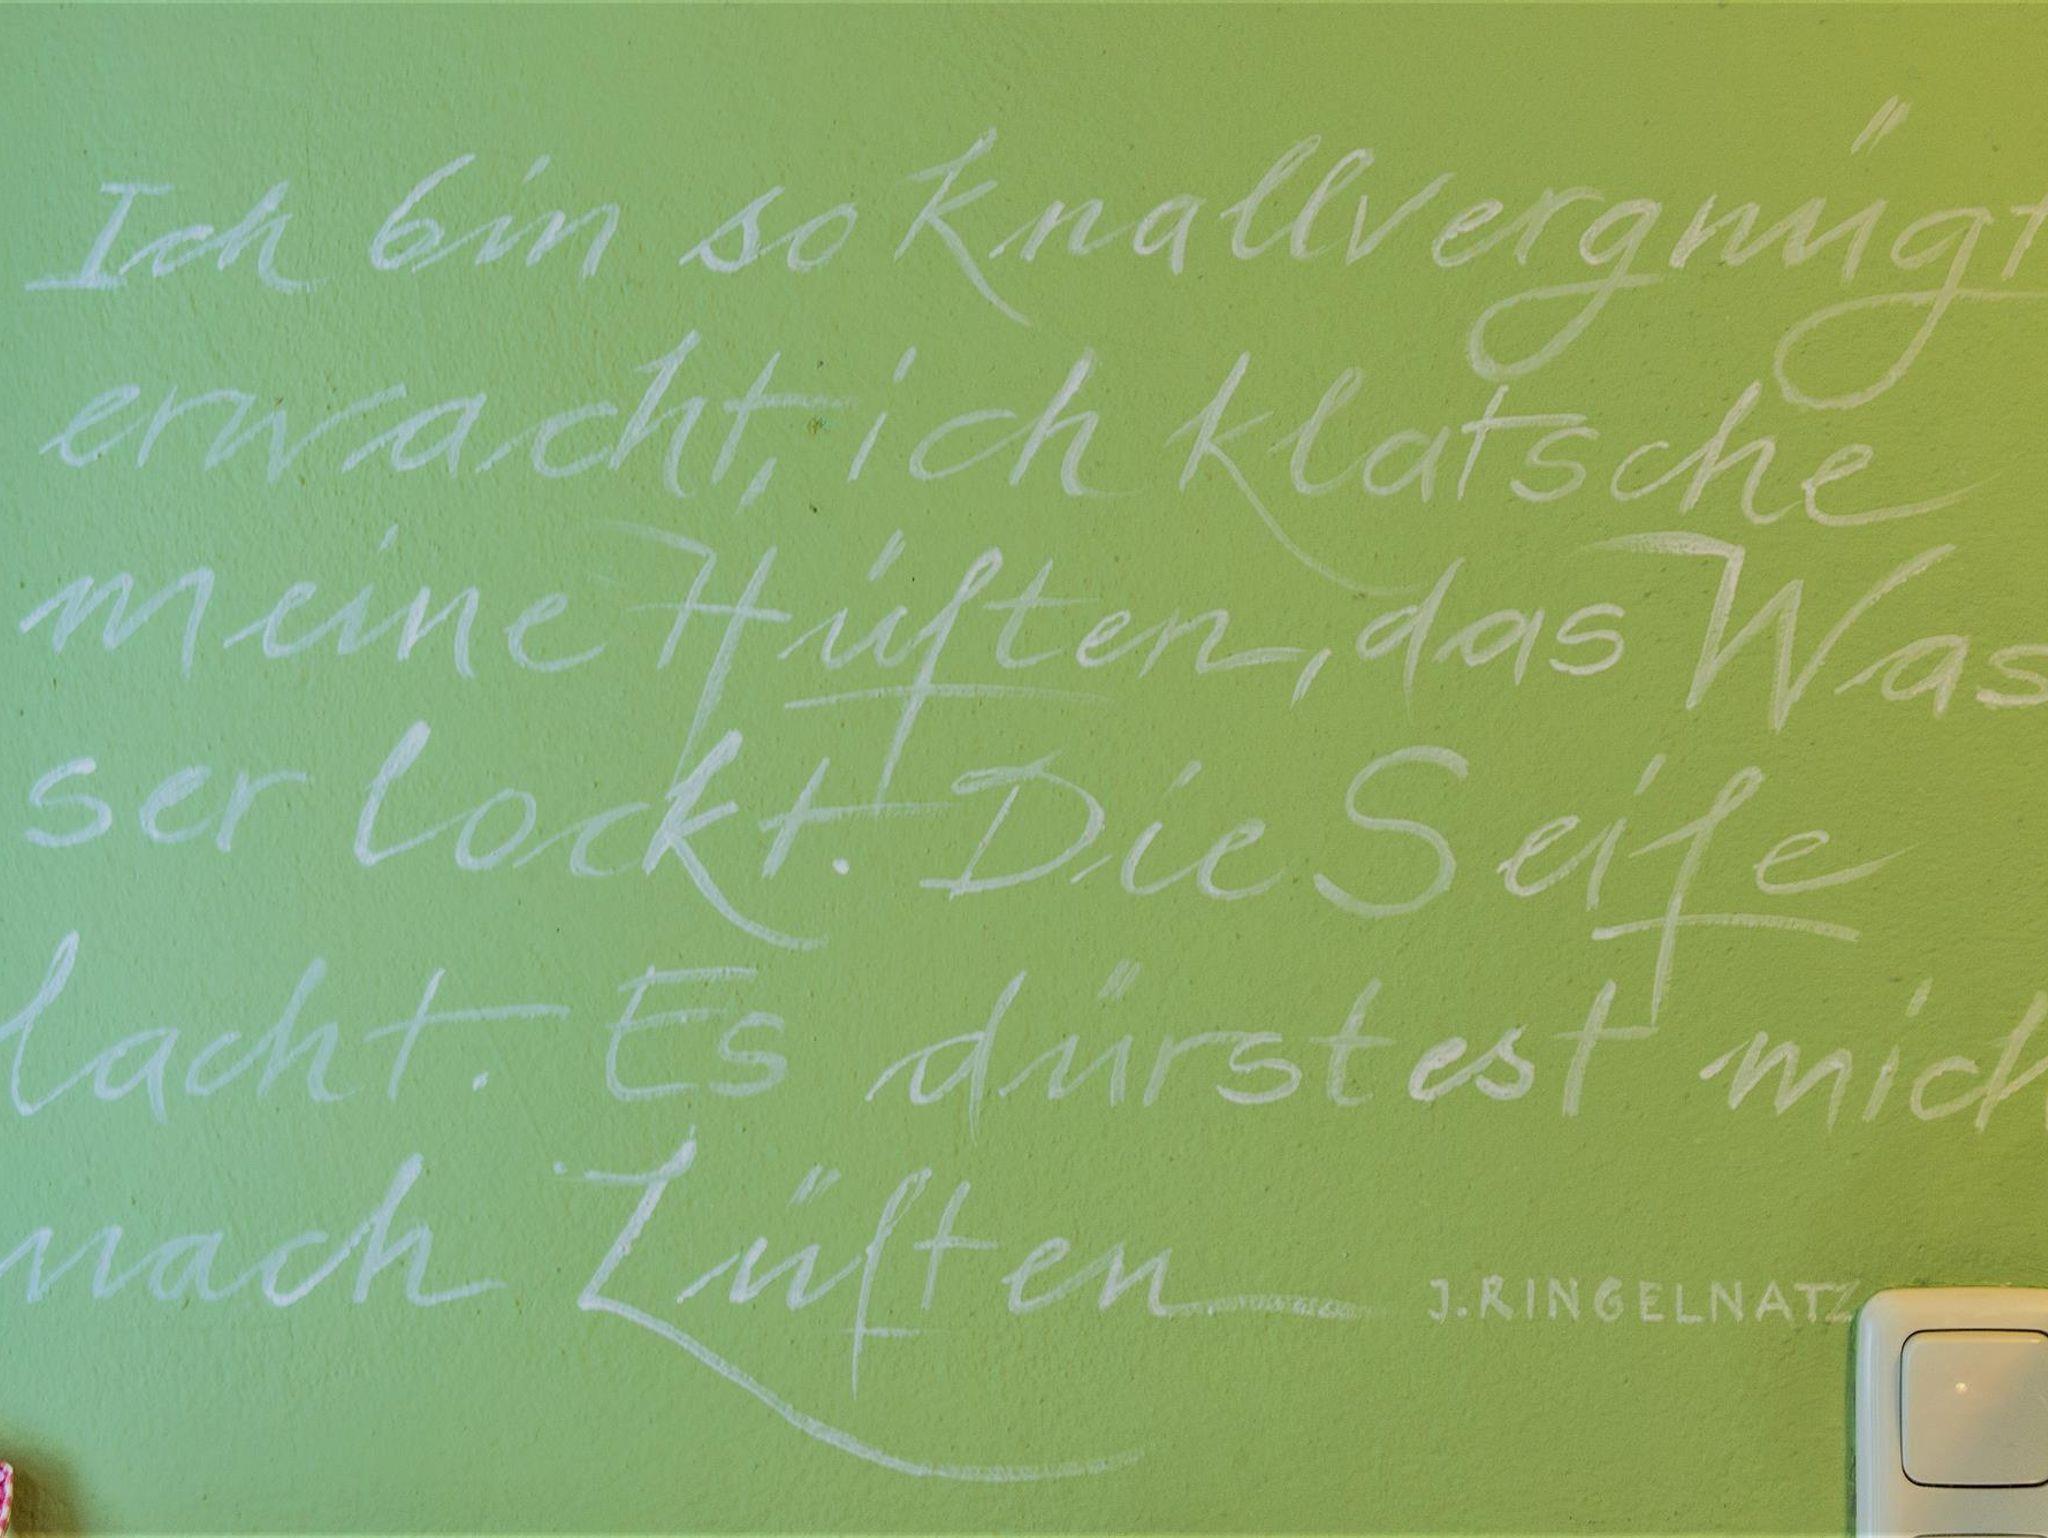 Ich bin so knallvergnügt
erwacht, ich klatsche
meine Hüften, das Was
ser lockt. Die Seife
lacht. Es dürstest mich
nach Lüften
J. RINGELNATZ